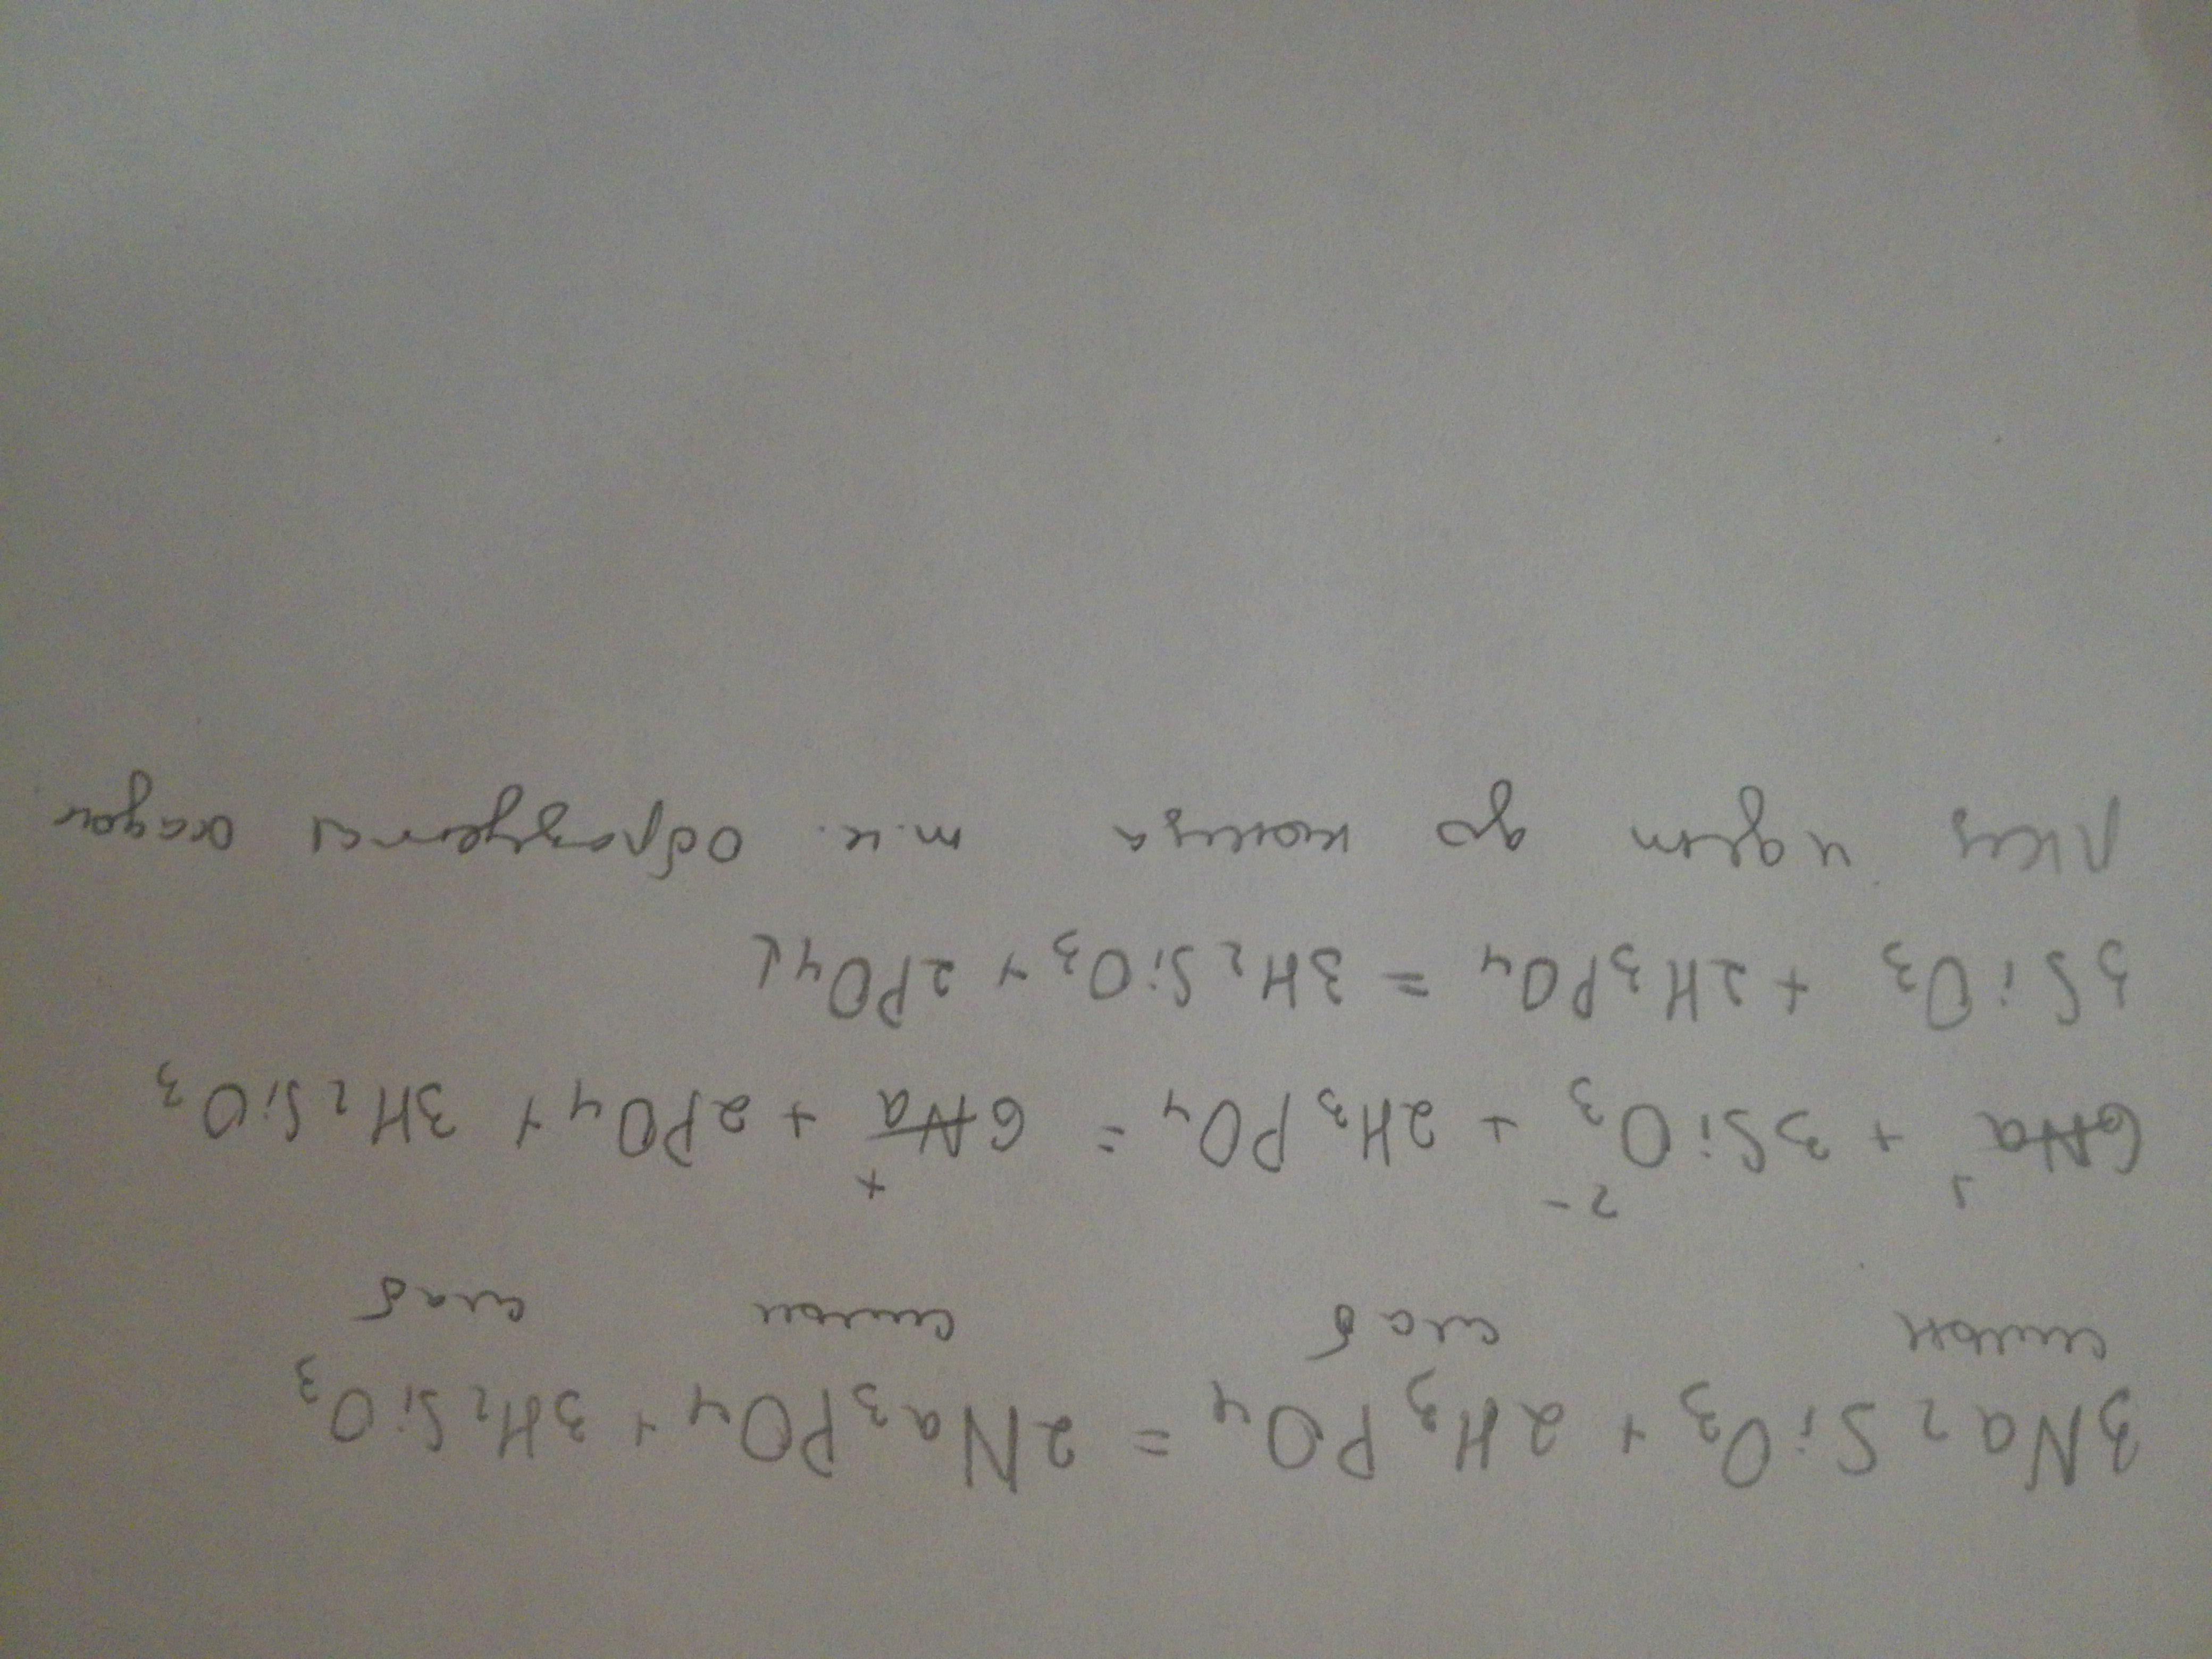 3Na₂SiO₃ + 2H₃PO₄ = 2Na₃PO₄ + 3H₂SiO₃
сильн слаб сильн слаб
6Na⁺ + 3SiO₃²⁻ + 2H₃PO₄ = 6Na⁺ + 2PO₄ + 3H₂SiO₃
3SiO₃ + 2H₃PO₄ = 3H₂SiO₃ + 2PO₄↓
идет до конца т.к. образуется осадок